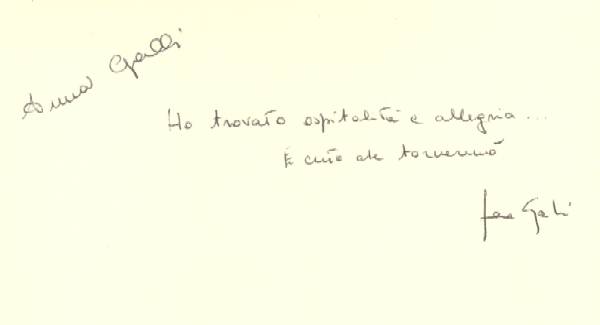 Anna Galli
Ho trovato ospitalità e allegria...
È certo che torneremo